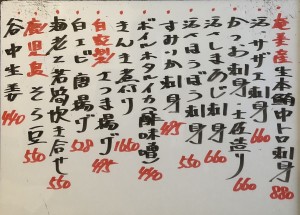 奄美産生本鮪中トロ刺身 880
活〆サザエ刺身 660
かつお刺身 土佐造り 660
活〆しまあじ刺身 660
活〆ほうぼう刺身 550
すみいか刺身 495
ボイルホタルイカ(酢味噌) 440
きんき煮付 1650
自家製さつま揚げ 495
白エビ唐揚げ 528
海老と若筍炊き合せ 550
鹿児島そら豆 550
谷中生姜 440